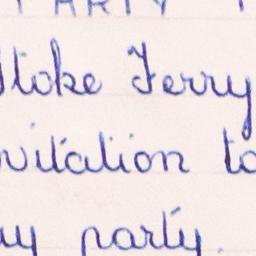 PARTY
Stoke Ferry
vitation to
party.